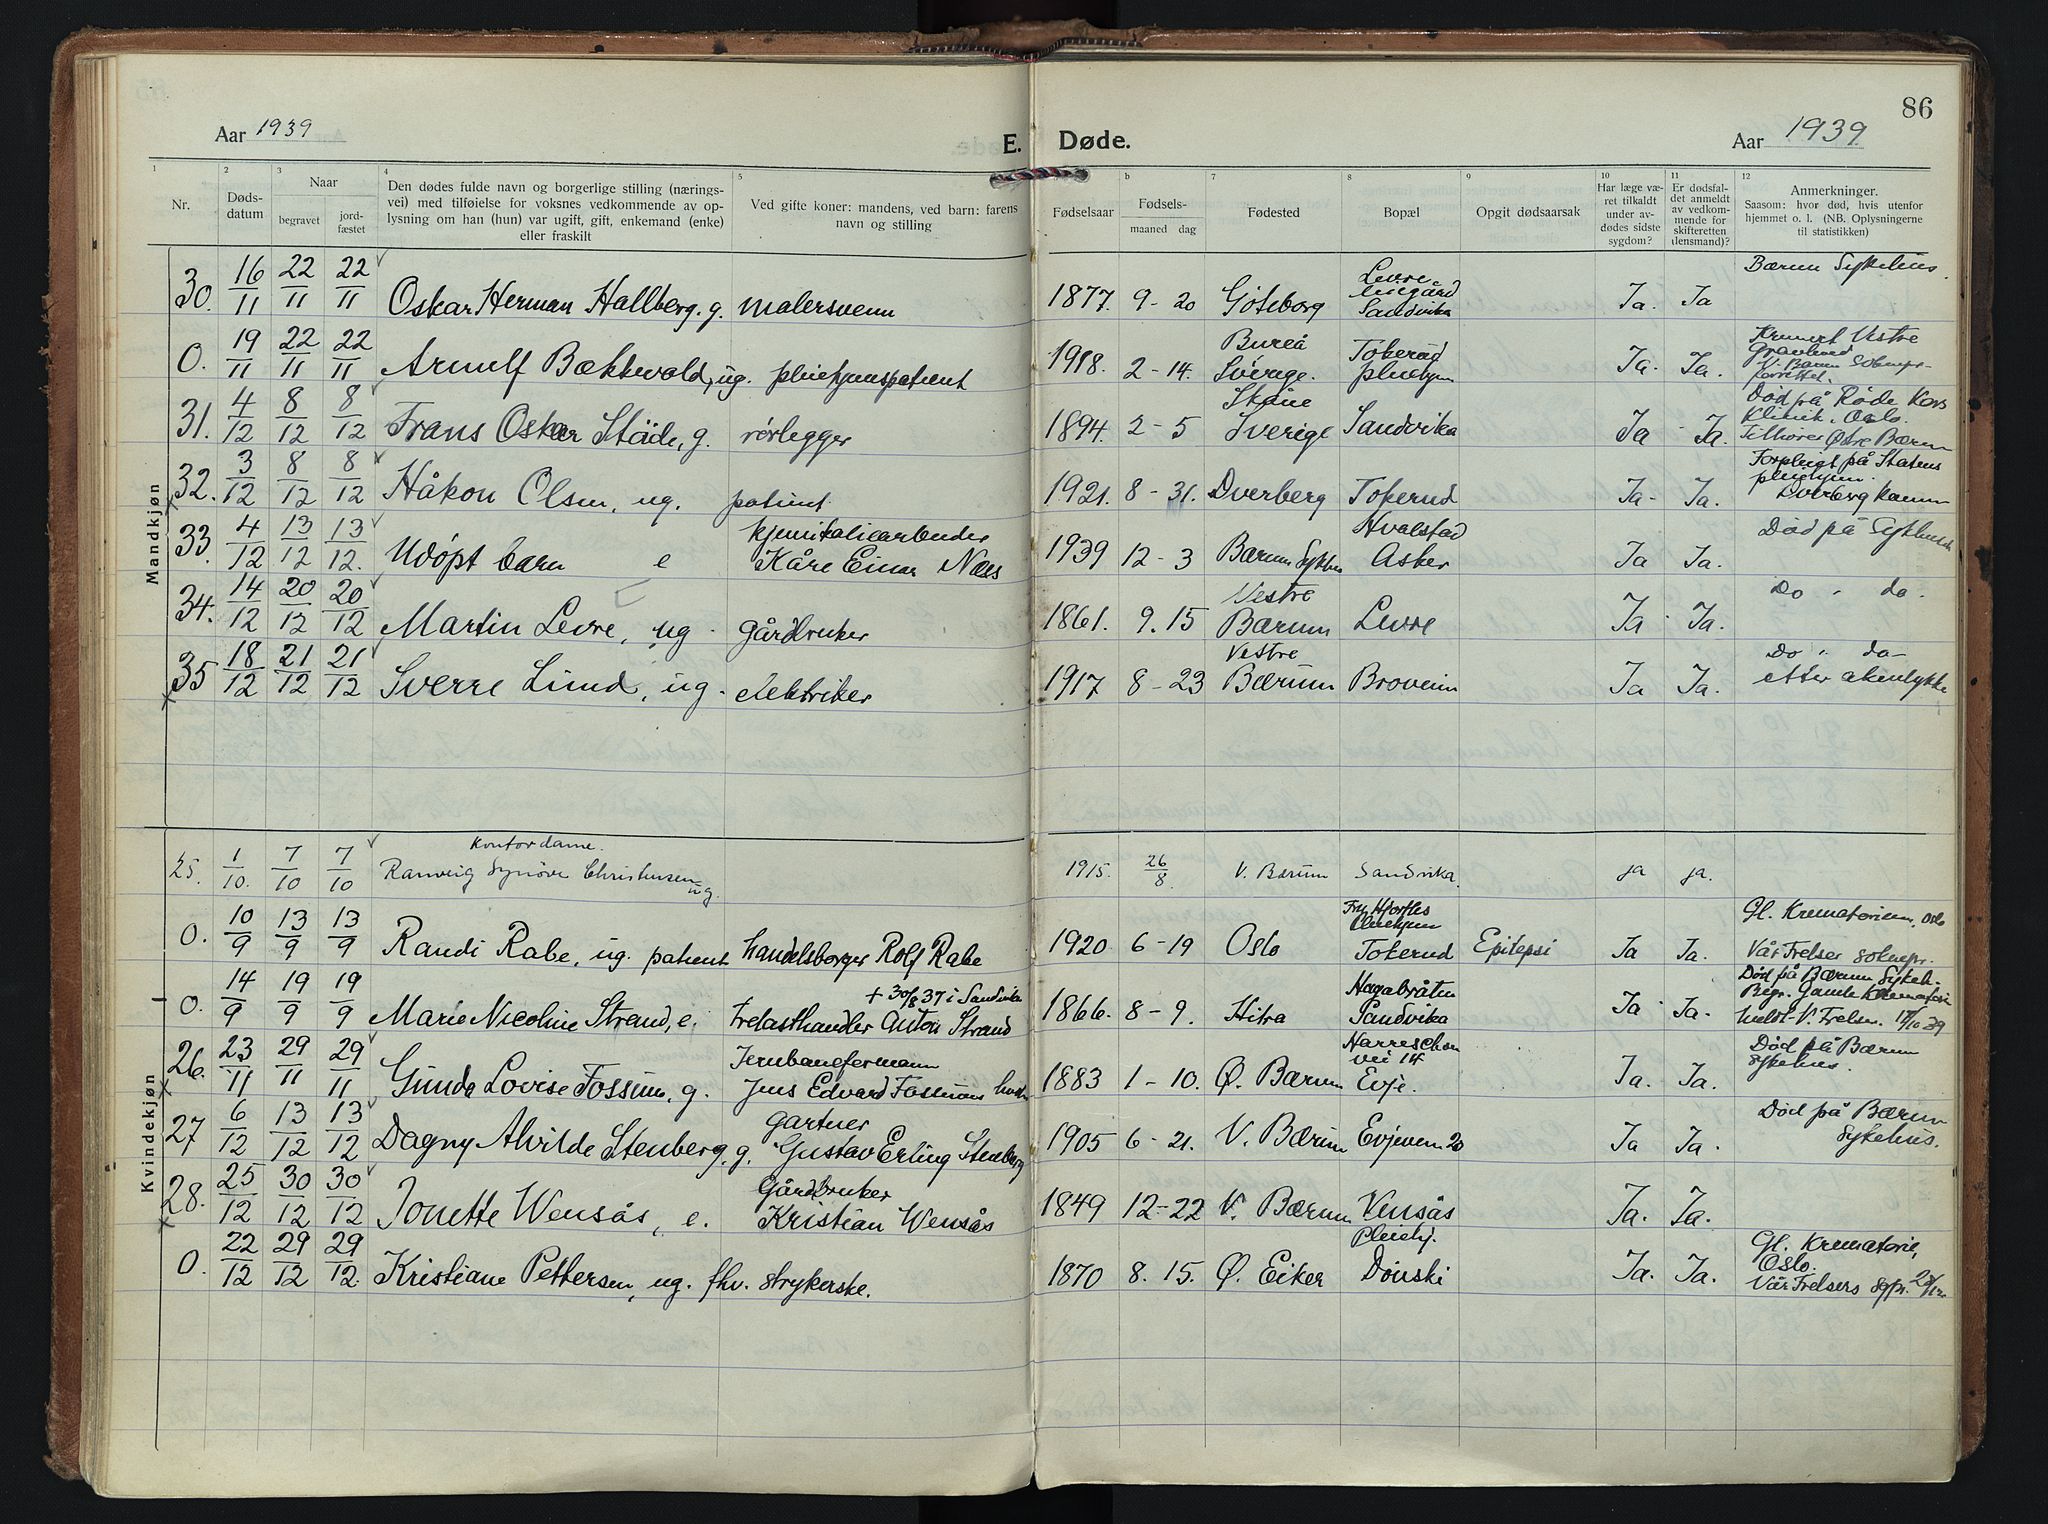 86
Aar 1939
E. Døde.
Aar 1939.
1 2 3 4 5 b 7 8 9 10 11 12
Nr.
Døds-
datum
Naar
begravet
jord-
fæstet
Den dødes fulde navn og borgerlige stilling (nærings-
vei) med tilføielse for voksnes vedkommende av op-
lysning om han (hun) var ugift, gift, enkemand (enke)
eller fraskilt
Ved gifte koner: mandens, ved barn: farens
navn og stilling
Fødselsaar
Fødsels-
maaned dag
Fødested
Bopæl
Opgit dødsaarsak
Har læge væ-
ret tilkaldt
under av-
dødes sidste
sygdom?
Er dødsfal-
det anmeldt
av vedkom-
mende for
skifteretten
(lensmand)?
Anmerkninger.
Saasom: hvor død, hvis utenfor
hjemmet o. l. (NB. Oplysningerne
til statistikken)
Mandkjøn
30. 16/11 22/11 22/11 Oskar Herman Hallberg. g. malersvenn 1877. 9-20 Göteborg Levre Sandvika Ja. Ja Bærum Sykehus.
0. 19/11 22/11 22/11 Arnulf Bækkvold, ug. pleiehjemspatient 1918. 2-14. Bureå Sverige. Tokerud pleiehjem Ja. Ja. Kremert Vestre Gravlund V. Bærum
31. 4/12 8/12 8/12 Frans Oskar Ståde, g. rørlegger 1894. 2-5 Skåne Sverige Sandvika Ja Ja. Død på Røde Kors Klinik, Oslo. Tilhører Østre Bærum
32. 3/12 8/12 8/12 Håkon Olsen, ug. patient 1921. 8-31. Dverberg Tokerud Ja- Ja. Forpleigt på Statens pleiehjem. Dverberg komm
33. 4/12 13/12 13/12. Udøpt barn e kjemikaliearbeider Kåre Einar Næss 1939 12-3 Bærum Sykehus Hvalstad Asker Ja Ja. Død på Sykehuset
34. 14/12 20/12 20/12 Martin Levre, ug. gårdbruker 1861. 9.15 Vestre Bærum Levre Ja Ja. Do " do.
35 18/12 21/12 21/12 Sverre Lund, ug. elektriker 1917 8-23 Vestre Bærum Broveien Ja Ja. Do " do- etter akeulykke
Kvindekjøn
25. 1/10. 7/10 7/10 Kontordame. Ranveig Synøve Christensen ug. 1915. 26/8 V. Bærum Sandvika. ja ja.
0. 10/9 13/9 13/9 Randi Rabe, ug. patient handelsborger Rolf Rabe 1920 6-19 Oslo Frk. Hjorths Pleiehjem Tokerud Epilepsi Ja Ja. Gl. Krematorium, Oslo Vår Frelser soknepr.
0. 14/9 19/9 19/9 Marie Nicoline Strand, e. + 30/8 37 i Sandvika Trelasthandler Anton Strand 1866. 8-9. Hitra Hagabråten Sandvika Ja Ja. Død på Bærum Sykeh. Begr. Gamle Krematori V. Frelser. 17/10 39
26. 23/11 29/11 29/11 Gunda Lovise Fossum, g. Jernbaneformann Jens Edvard Fossums hustru 1883 1-10. Ø. Bærum Harreschou vei 14 Evje. Ja. Ja. Død på Bærum sykehus.
27 6/12 13/12 13/12 Dagny Alvilde Stenberg, g. gartner Gustav Erling Stenberg 1905 6-21. V. Bærum Evjeveien 20 Ja Ja. Død på Bærum Sykehus.
28. 25/12 30/12 30/12 Jonette Wensås, e. Gårdbruker Kristian Wensås 1849 12-22 V. Bærum Vensås Ja. Ja.
0. 22/12 29/12 29/12. Kristiane Pettersen, ug. fhv. strykerske. 1870 8. 15. Ø. Eiker Pleiehj. Dønski Ja. Ja. Gl. Krematorie, Oslo. Vår Frelsers sgpr. 28/12